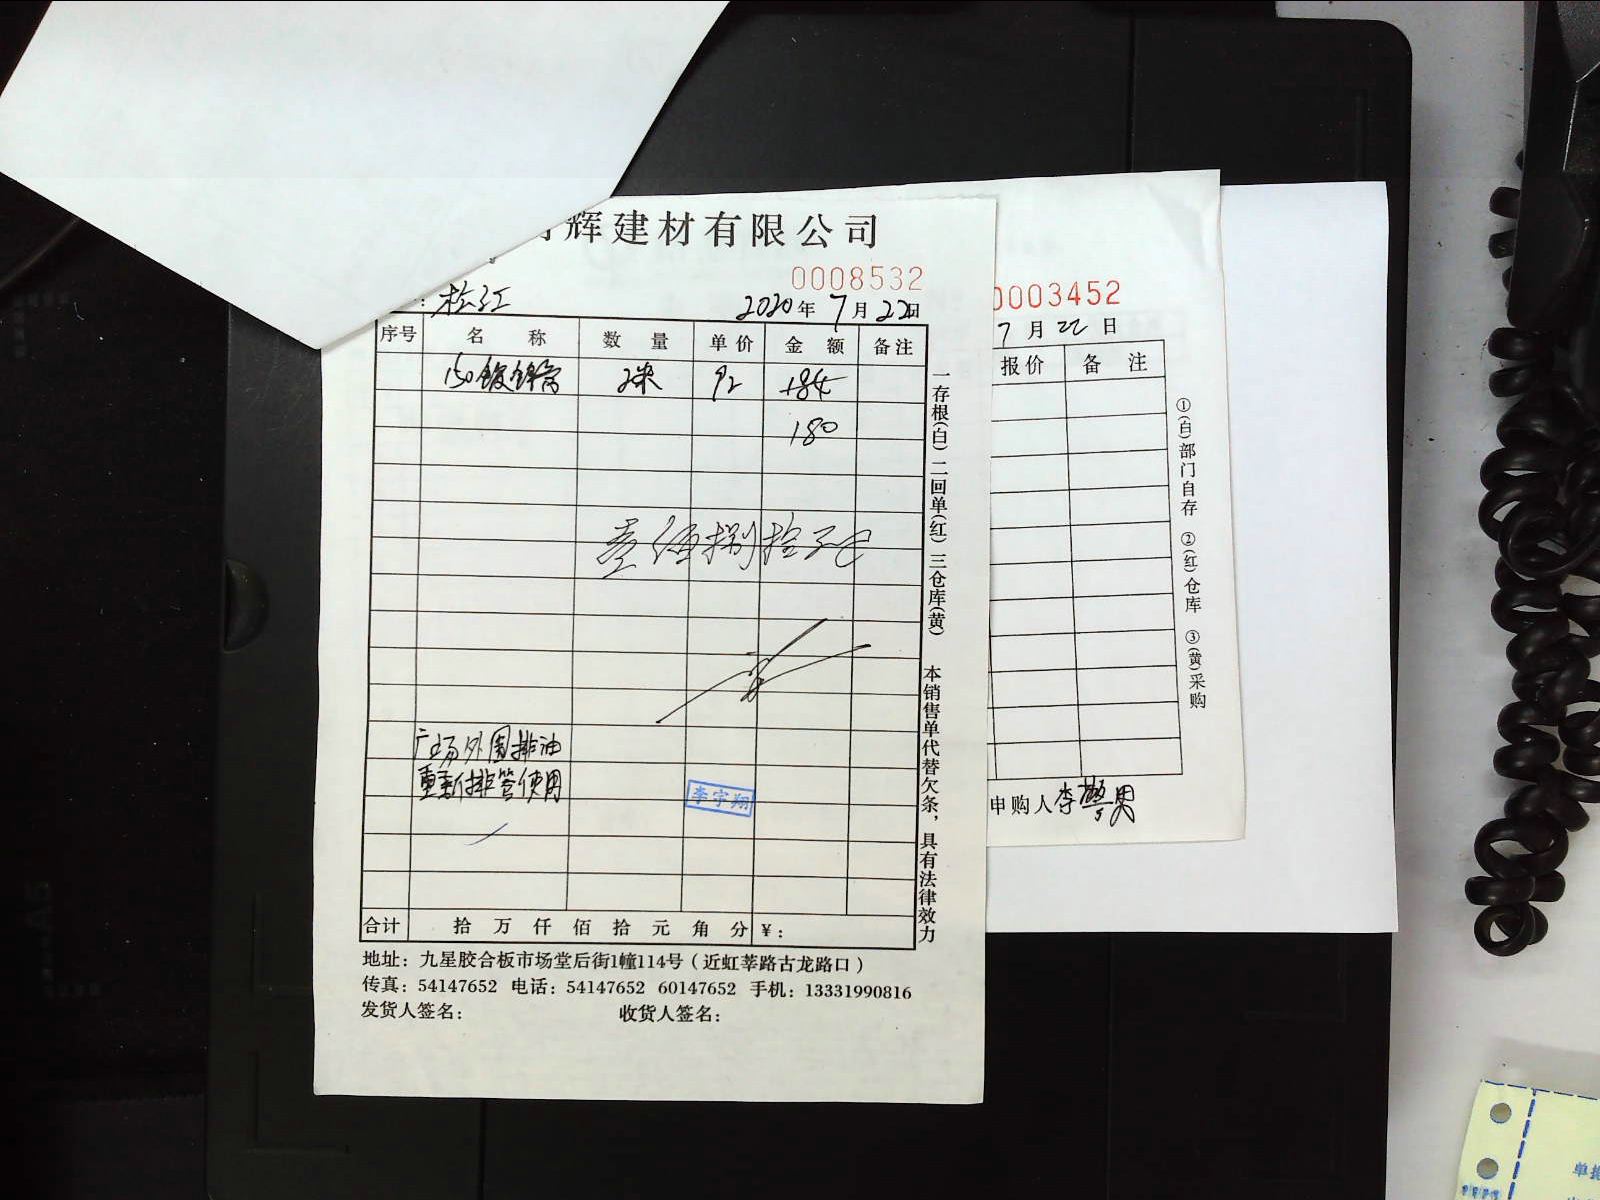 辉建材有限公司
0008532
：松江 2020年7月22日
序号 名 称 数 量 单价 金 额 备注
150镀锌管 2米 92 184
180
壹佰捌拾元正
广场外围排油
重新排管使用
李宇翔
合计 拾 万 仟 佰 拾 元 角 分 ￥：
地址：九星胶合板市场堂后街1幢114号（近虹莘路古龙路口）
传真：54147652 电话：54147652 60147652 手机：13331990816
发货人签名： 收货人签名：
一存根(白)二回单(红)三仓库(黄) 本销售单代替欠条，具有法律效力
0003452
7月22日
报价 备 注
①(白)部门自存 ②(红)仓库 ③(黄)采购
申购人李